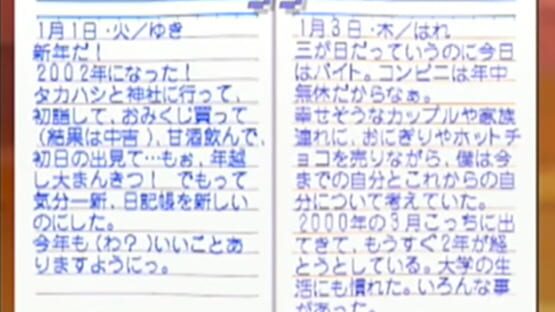 1月1日・火／ゆき
新年だ！
2002年になった！
タカハシと神社に行って、
初詣して、おみくじ買って
(結果は中吉)、甘酒飲んで、
初日の出見て…もぉ、年越
し大まんきつ！　でもって
気分一新、日記帳を新しい
のにした。
今年も(わ？)いいことあ
りますようにっ。
1月3日・木／はれ
三が日だっていうのに今日
はバイト。コンビニは年中
無休だからなぁ。
幸せそうなカップルや家族
連れに、おにぎりやホットチ
ョコを売りながら、僕は今
までの自分とこれからの自
分について考えていた。
2000年の3月こっちに出
てきて、もうすぐ2年が経
とうとしている。大学の生
活にも慣れた。いろんな事
があった。